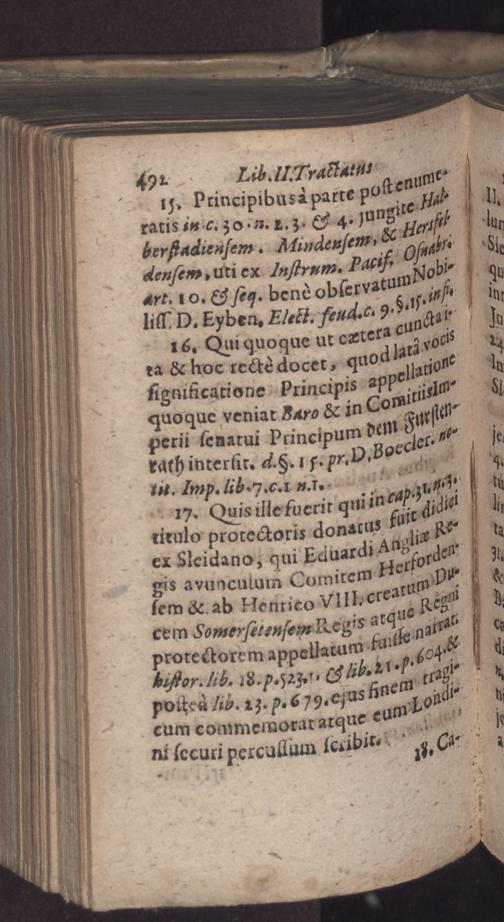 492 Lib. II. Tractatus
15. Principibus à parte post enume-
ratis in c. 30. n. 2. 3. & 4. jungite Hal-
berstadiensem. Mindensem, & Hersfel-
densem, uti ex Instrum. Pacif. Osnabr.
art. 10. & seq. benè observatum Nobi-
liss. D. Eyben, Elect. feud. c. 9. §. 15. in fi.
16. Qui quoque ut cætera cuncta i-
ta & hoc rectè docet, quod latâ vocis
significatione Principis appellatione
quoque veniat Baro & in Comitiis Im-
perii senatui Principum dem Fursten-
rath intersit. d. §. 15. pr. D. Boecler. no-
tit. Imp. lib. 7. c. 1 n. 1.
17. Quis ille fuerit qui in cap. 31. n. 3.
titulo protectoris donatus fuit didici
ex Sleidano, qui Eduardi Angliæ Re-
gis avunculum Comitem Herforden-
sem & ab Henrico VIII. creatum Du-
cem Somersetensem Regis atque Regni
protectorem appellatum fuisse narrat.
histor. lib. 18. p. 523. & lib. 21. p. 604. &
posteà lib. 23. p. 679. ejus finem tragi-
cum commemorat atque eum Londi-
ni securi percussum scribit.
18. Ca-